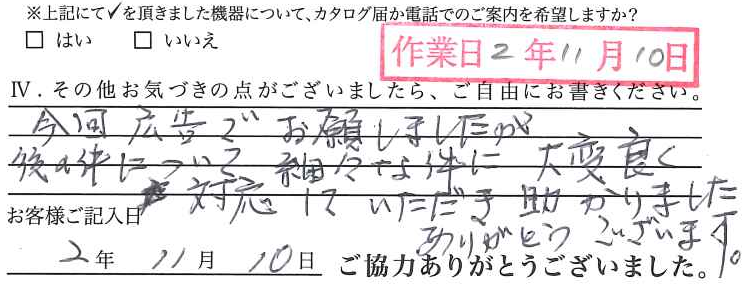 ※上記にて✓を頂きました機器について、カタログ届か電話でのご案内を希望しますか?
□ はい □ いいえ
作業日 2 年 11 月 10 日
Ⅳ.その他お気づきの点がございましたら、ご自由にお書きください。
今回広告でお願いしましたが
後の件について細々な件に大変良く
対応していただき助かりました
ありがとうございます。
お客様ご記入日
2 年 11 月 10 日 ご協力ありがとうございました。